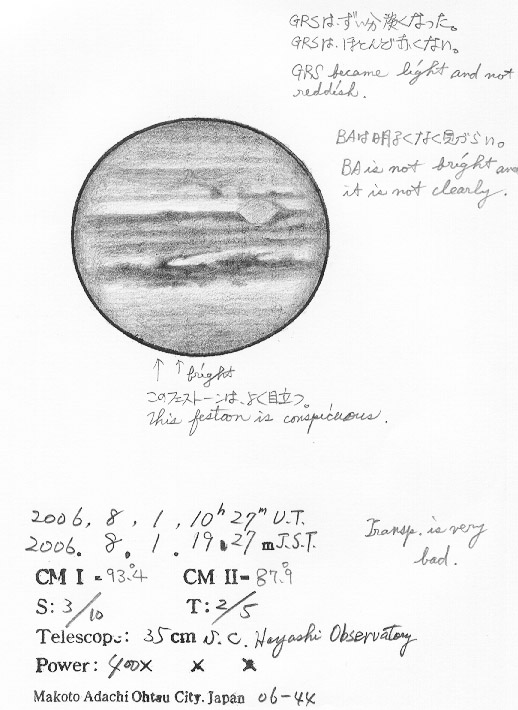 GRSは、ずい分淡くなった。
GRSは、ほとんど赤くない。
GRS became light and not
reddish.
BAは明るくなく見づらい。
BA is not bright and
it is not clearly.
↑ ↑ bright
このフェストーンは、よく目立つ。
This festoon is conspicuous.
2006. 8. 1. 10h 27m U.T.
2006. 8. 1. 19. 27 m J.S.T.
Transp. is very
bad.
CM I = 93.°4 CM II= 87.°9
S: 3/10 T: 2/5
Telescope: 35cm S.C. Hayashi Observatory
Power: 400× × ×
Makoto Adachi Ohtsu City. Japan 06-44